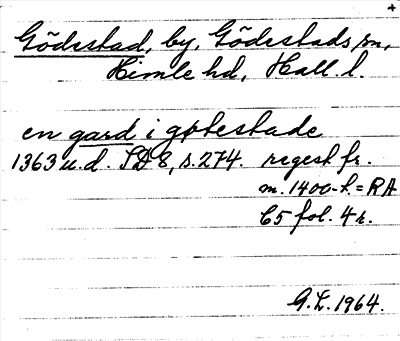 Gödestad, by, Gödestads sn,
Himle hd, Hall. l.
en gard i gøtestade
1363 u.d. SD 8, s. 274. regest fr.
m. 1400-t. = RA
C5 fol. 4r.
G.L. 1964.